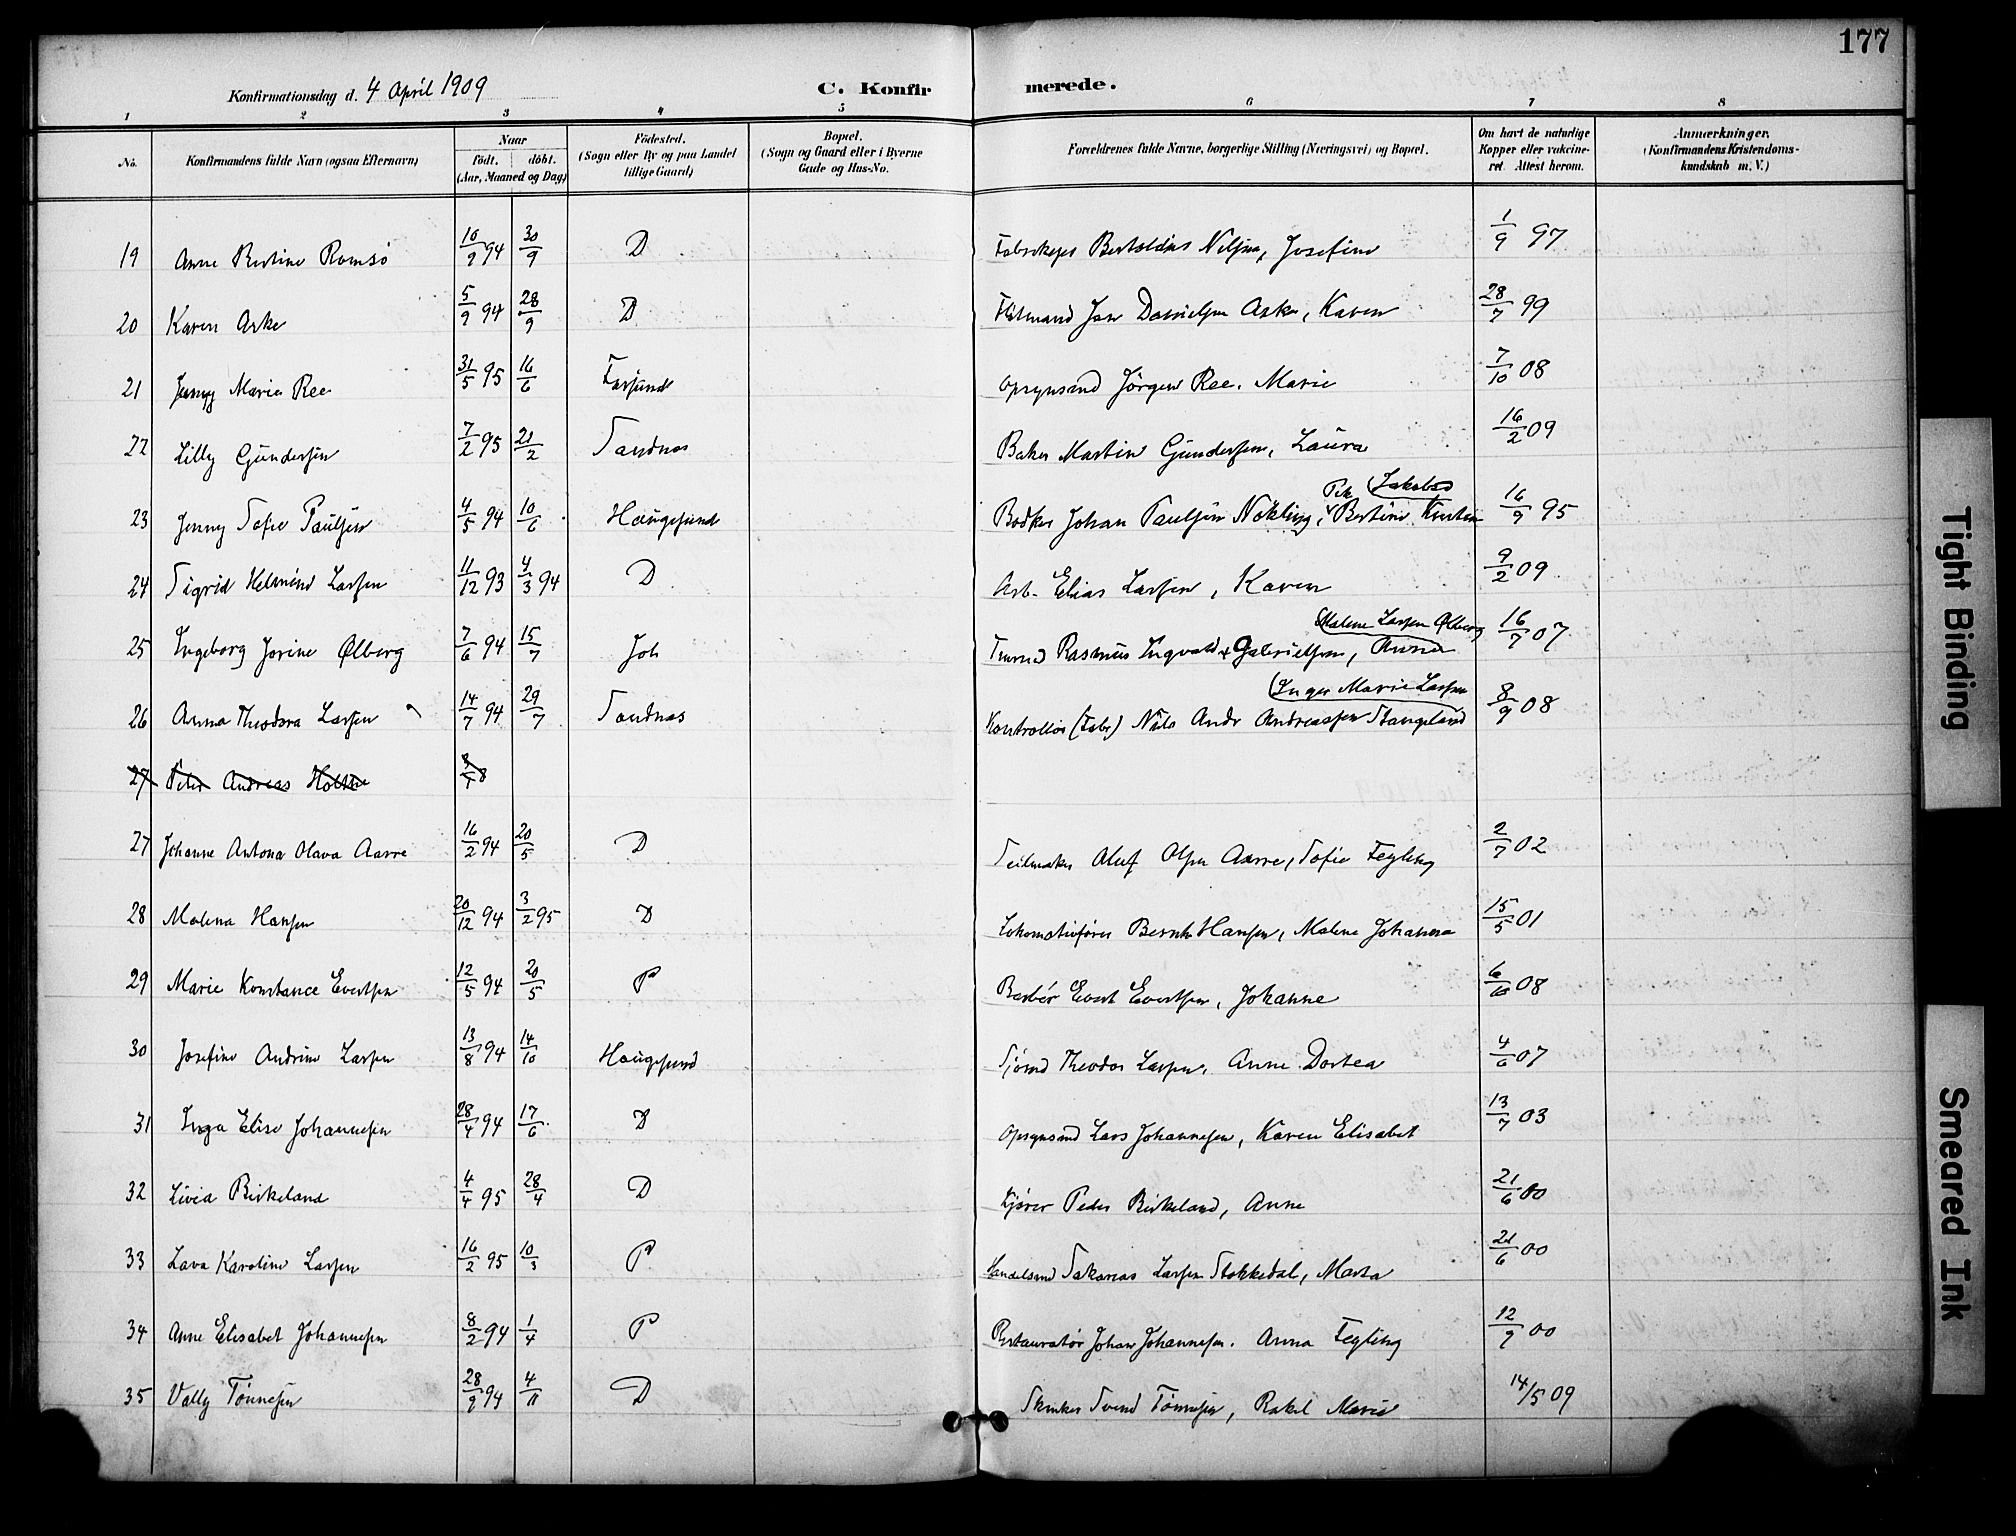 177
Konfirmationsdag d. 4 April 1909 C. Konfirmerede.
1 2 3 4 5 6 7 8
No. Konfirmandens fulde Navn (ogsaa Efternavn) Naar født. døbt. (Aar, Maaned og Dag) Fødested. (Sogn eller By og paa Landet tillige Gaard) Bopæl. (Sogn og Gaard eller i Byerne Gade og Hus-No. Forældrenes fulde Navne, borgerlige Stilling (Næringsvei) og Bopæl. Om havt de naturlige Kopper eller vakcineret. Attest herom. Anmærkninger. (Konfirmandens Kristendomskundskab m. V.)
19 Anne Bertine Ramsö 10/9 94 30/9 D Bertoldus Nilsen, Josefine 1/9 97
20 Karen Aske 5/9 94 28/9 D Jan Danielsen Aske, Karen 28/7 99
21 Jenny Marie Ree 31/5 95 16/6 Farsund Opsynsmd Jörgen Ree, Marie 7/10 08
22 Lilly Gundersen 7/2 95 21/2 Sandnæs Baker Martin Gundersen, Laura 16/2 09
Jakobsd
23 Jenny Sofie Paulsen 4/5 94 10/6 Haugesund Bødker Johan Paulsen Nökling, Bertine Kristin 16/9 95
24 Sigrid Helmine Larsen 11/12 93 4/3 94 D Arb. Elias Larsen, Karen 9/2 09
Malene Larsen Ølberg
25 Ingeborg Jorine Ølberg 7/6 94 15/7 Joh Rasmus Ingvald Gabrielsen, Anna 16/7 07
Inger Marie Larsen
26 Anna Theodora Larsen 14/7 94 29/7 Sandnæs Kontrollør (Fabr) Nils Andr Andreassen Stangeland 8/9 08
27 Peter Andreas Holthe
27 Johanne Antona Olava Aarre 16/2 94 20/5 D Seilmaker Oluf Olsen Aarre, Sofie Fegling 2/7 02
28 Malena Hansen 20/12 94 3/2 95 D Lokomotivfører Bernh Hansen, Malene Johanna 15/5 01
29 Marie Konstance Evertsen 12/5 94 20/5 P Barbér Evert Evertsen, Johanne 6/10 08
30 Josefine Andrine Larsen 13/8 94 14/10 Haugesund Sjömd Theodor Larsen, Anne Dortea 4/6 07
31 Inga Elise Johannesen 28/4 94 17/6 D Opsynsmd Lars Johannesen, Karen Elisabet 13/7 03
32 Livia Birkeland 4/4 95 28/4 D Kjører Peder Birkeland, Anne 21/6 00
33 Lava Karoline Larsen 16/2 95 10/3 P Handelsmd Sakarias Larsen Stokkedal, Marta 21/6 00
34 Anne Elisabet Johannesen 8/2 94 1/4 P Restauratør Johan Johannesen, Anna Fegling 12/9 00
35 Vally Tönnesen 28/9 94 4/11 D Skinker Svend Tönnesen, Rakel Marie 14/5 09
Tight Binding
Smeared Ink